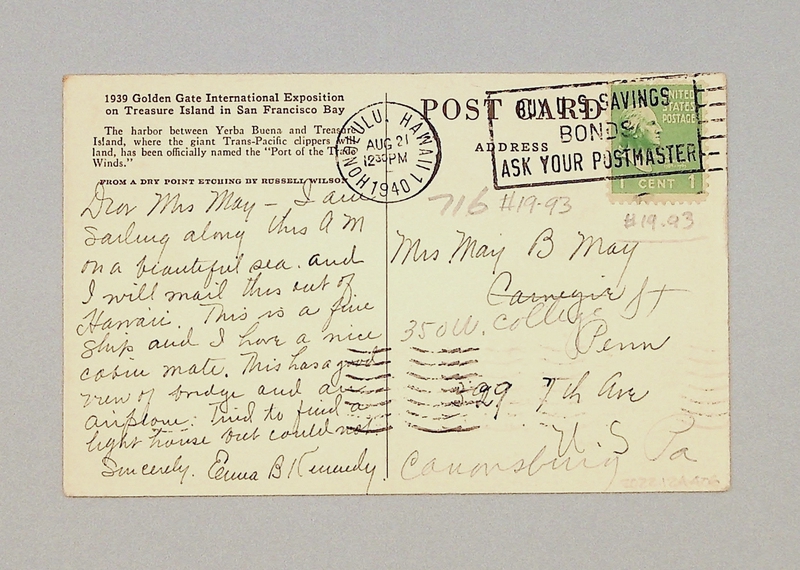 1939 Golden Gate International Exposition
on Treasure Island in San Francisco Bay
The harbor between Yerba Buena and Treasure
Island, where the giant Trans-Pacific clippers will
land, has been officially named the "Port of the Trade
Winds."
FROM A DRY POINT ETCHING BY RUSSELL WILSON
Dear Mrs May – I am
sailing along this A M
on a beautiful sea. and
I will mail this out of
Hawaii. This is a fine
ship and I have a nice
cabin mate. This has a good
view of bridge and an
airplane. Tried to find a
light house but could not.
Sincerely. Emma B Kennedy.
HONOLULU, HAWAII
AUG 21
12 30 PM
1940
1
POST CARD
ADDRESS
BUY U.S. SAVINGS
BONDS
ASK YOUR POSTMASTER
UNITED
STATES
POSTAGE
1 CENT 1
716 #19-93
#19.93
Mrs. May B May
Carnegie St
350 W. College
Penn
329 7th Ave
U. S
Canonsburg Pa